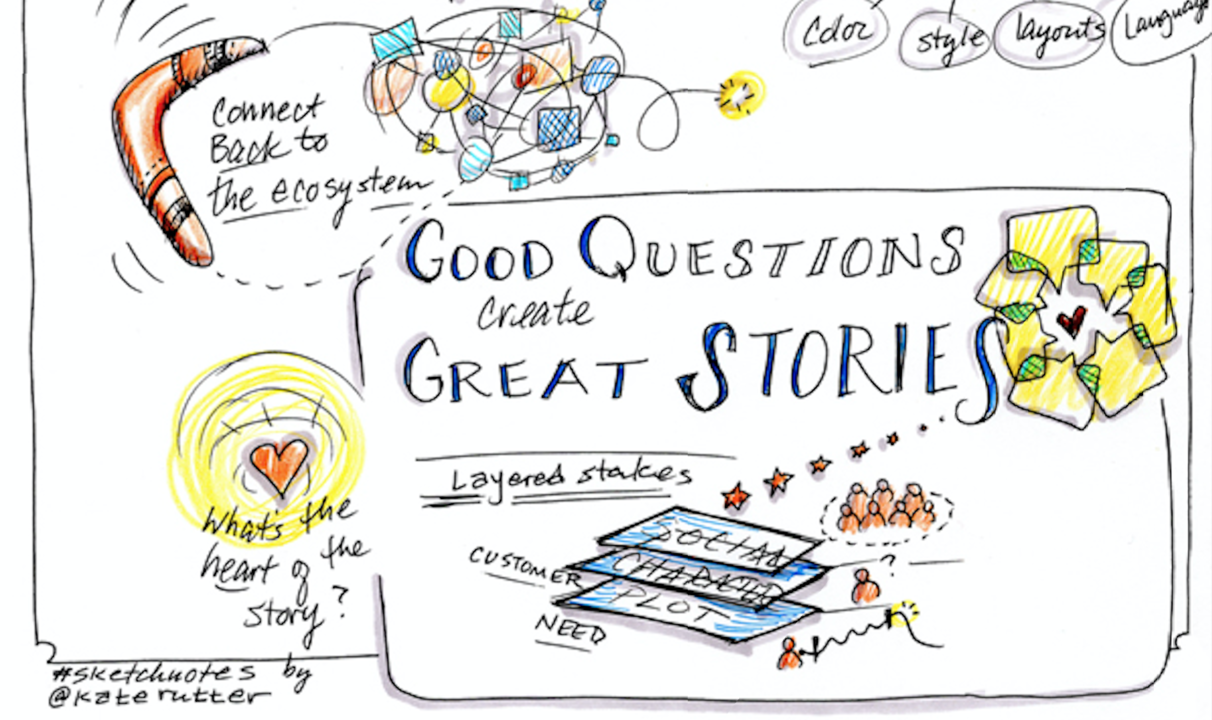 Color
style
layouts
Language
Connect
Back to
the ecosystem
GOOD QUESTIONS
create
GREAT STORIES
Layered stakes
SOCIAL
CUSTOMER
CHARACTER
PLOT
NEED
?
What's the
heart of the
story?
#sketchnotes by
@katerutter